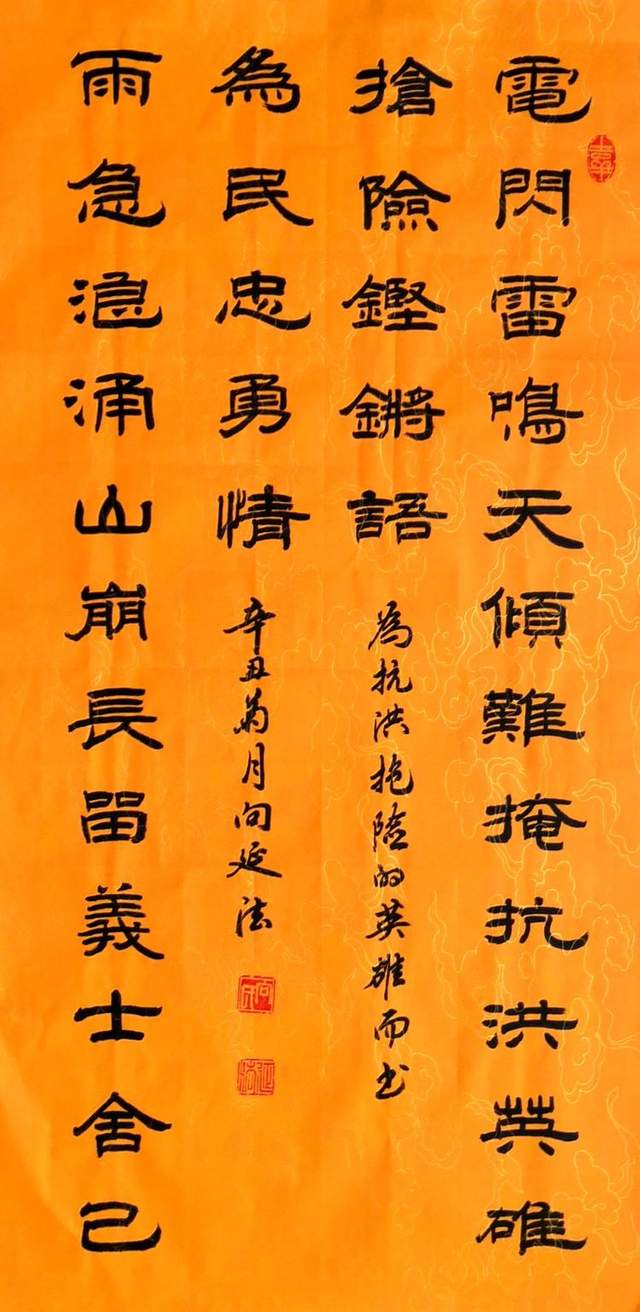 電閃雷鳴天傾難掩抗洪英雄
搶險鏗鏘語
為抗洪抢险的英雄而书
雨急浪涌山崩長留義士舍己
為民忠勇情
辛丑菊月向延法